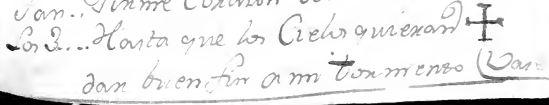 Los 2... Hasta que los Cielos quieran
dar buen fin a mi tormento (Vas